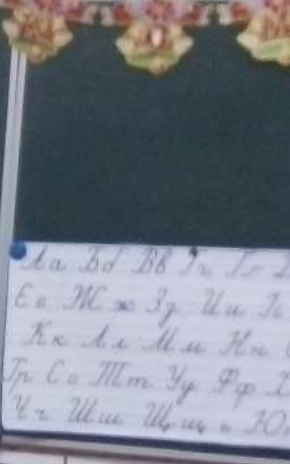 Аа Бб Вв Гг Ґґ
Єє Жж Зз Ии Іі
Кк Лл Мм Нн
Рр Сс Тт Уу Фф Х
Чч Шш Щщ ь Ю